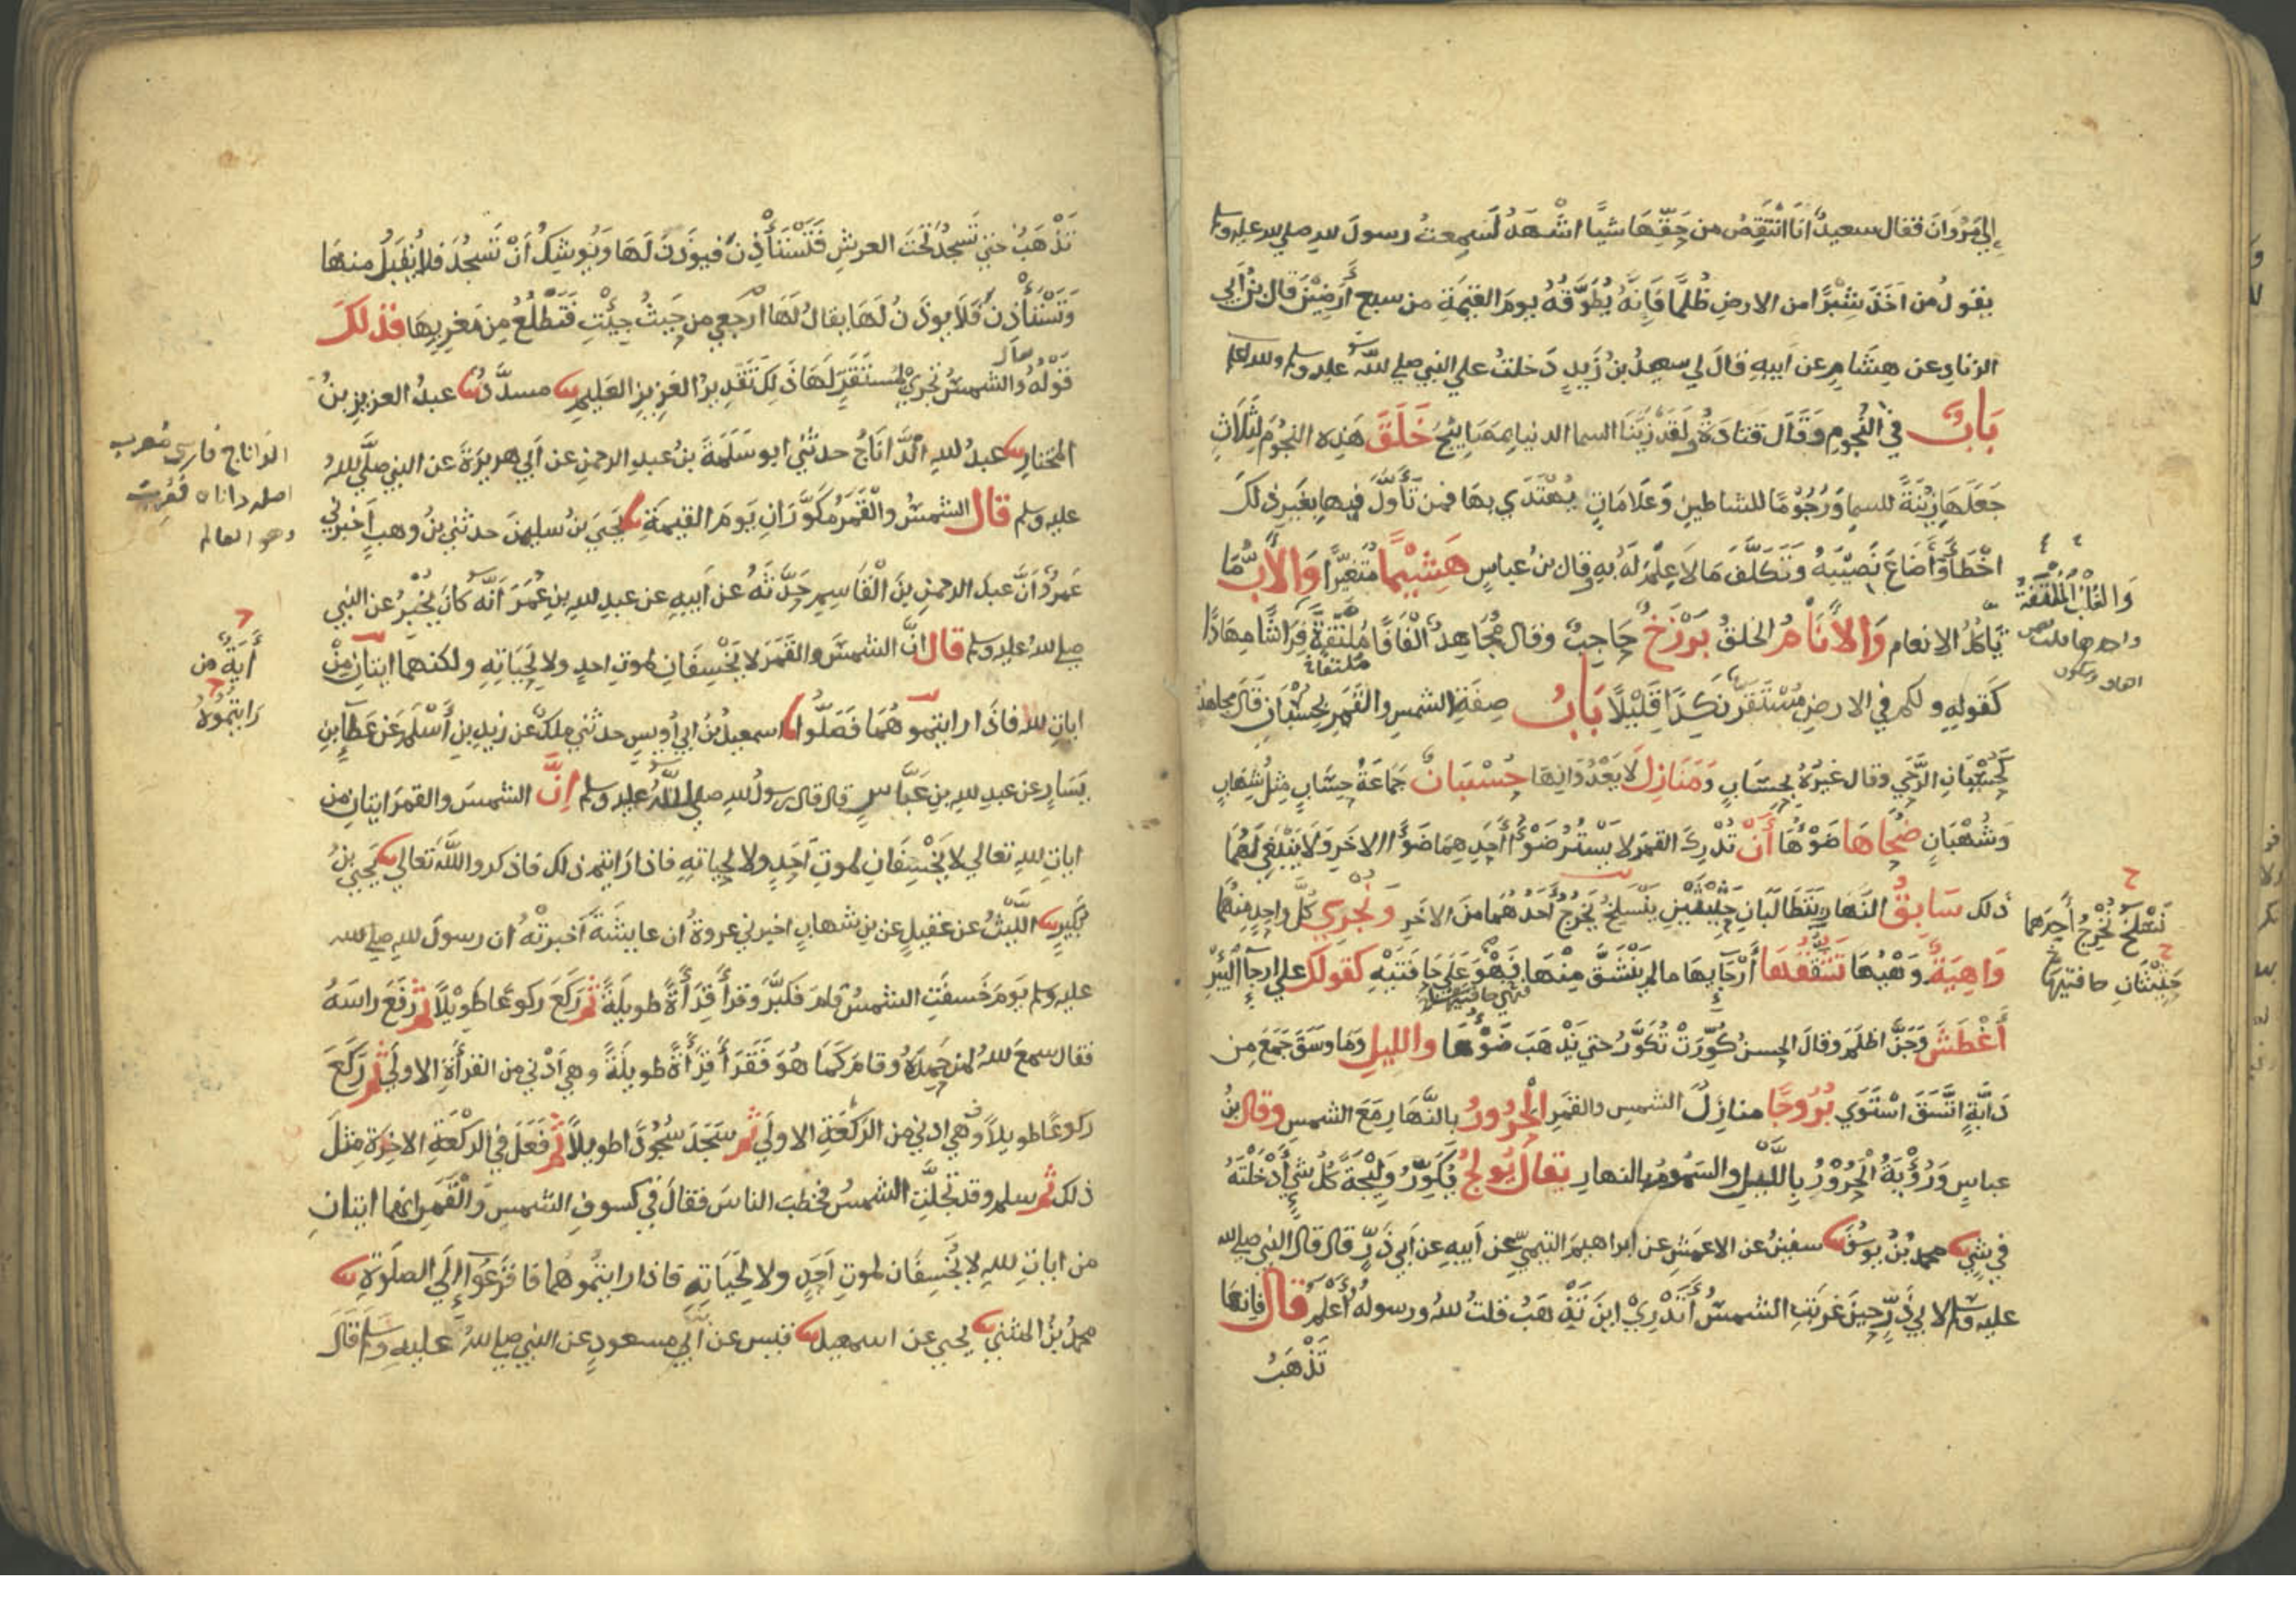 إلي مَرْوَانَ فقال سعيدٌ انَا أَنْتَقِصُ من حَقِّهَا شيًا اشْهَدُ لَسَمِعتُ رسولَ لله صلي لله عليه وسلم
يقولُ من اَخَذَ شِبْرًا من الارضِ ظُلْمًا فَإِنَّهُ يُطَوَّقُهُ يومَ القيمَةِ من سبعِ أَرَضِيْنَ قال بنُ أَبي
الزنادِ عن هِشَامٍ عن ابيهِ قالَ لي سعيدُ بنُ زَيدٍ دَخلتُ علي النبي صلي للهُ عليه وسلم
بَابٌ في النُّجُومِ وَقَالَ قتَادَةُ وَلَقَدْ زَيَّنَا السما الدنيا بِمَصَابِيْحَ خَلَقَ هَذِه النجُومَ لِثَلَاثٍ
جَعَلَهَا زِيْنَةً للسما وَرُجُوْمًا للشاطينِ وَعَلَامَاتٍ يُهْتَدَي بهَا فمن تَأَوَّلَ فيها بغَيرِ ذلكَ
اخْطَأَ وَأَضَاعَ نَصِيْبَهُ وَتَكَلَّفَ مَا لَا عِلْمَ لَهُ بهِ وقال بنُ عباسٍ هَشِيْمًا مُتَغيّرًا وَالأَبُّ مَا
يَاكُلُ الانعام وَالأَنَامُ الخلقُ بَرْزَخٌ حَاجِبٌ وقال مُجُاهِدٌ أَلْفَافًا مُلْتَفَّةً فِرَاشًا مِهَادًا
مُلتفاة
كَقولهِ ولكم في الارضِ مُسْتَقَرٌّ نَكَدًا قَلِيْلًا بَابُ صِفَةِ الشمسِ والقَمَرِ بِحُسْبَانٍ قَالَ مجاهدٌ
كَحُسْبَانِ الرَّحَي وقال غيرُهُ بحسَابٍ وَمَنَازِلَ لَا يَعْدُوَانِهَا حُسْبَانٌ جَمَاعَةُ حِسَابٍ مِثلُ شِهَابٍ
وَشُهْبَانٍ ضُحَاهَا ضَوْءُهَا أَنْ تُدْرِكَ القمرَ لا يَسْتُرُ ضَوْءُ أَحَدِهِمَا ضَوْءَ الاخَرِ وَلَا يَنْبَغِي لَهُمَا
ذلك سَابِقُ النَّهارِ يَتَطَالَبَانِ حَثِيْثَيْنِ نَسْلَخُ نُخْرِجُ أَحَدَهُمَا منَ الاخَرِ وَنُجْرِي كُلَّ واحِدٍ مِنْهُمَا
وَاهِيَةٌ وَهْيُهَا تَشَقُّقُهَا أَرْجَايهَا مالم يَنْشَقَّ مِنْهَا فَهْوَ عَلَي حَافَتَيْهِ كقولك علي ارجآ البِئْرِ
أَغْطَشَ وَجَنَّ اظلَمَ وقالَ الحسنُ كُوِّرَتْ تُكَوَّرُ حتي يَذْهَبَ ضَوْءُهَا والليلِ وَمَا وَسَقَ جَمَعَ مِن
دَآبَّةٍ اتَّسَقَ اسْتَوَي بُرُوجًا منازِلَ الشمسِ والقمَرِ الْحَرُورُ بالنَّهَارِ مَعَ الشمسِ وقال بنُ
عباسٍ وَرُؤْبَةُ الْحَرُوْرُ بِاللَّيلِ والسَمُومُ بالنهارِ يقالُ يُولِجُ يُكَوِّرُ وَلِيْجَةً كُلُّ شيٍ أَدْخَلْتَهُ
في شيٍ محمدُ بنُ يوسُفَ سفينُ عن الاعمَشِ عن ابراهيمَ التيميِّ عن أَبيهِ عن أَبي ذَرٍّ قال قال النبي صلي لله
عليه وسلم لابي ذَرٍّ حِينَ غَرَبَتِ الشمسُ أَتَدْرِيْ اينَ تَذْهَبُ قلتُ للهُ ورسولهُ أَعْلَمُ قال فانها
تَذْهَبُ
وَالغُلْبُ الْمُلْتَفَّةُ
تَذْهَبُ حتي تَسجُدَ تَحْتَ العرشِ فَتَسْتَأْذِنَ فيوذنُ لَهَا وَيُوشِكُ أَنْ تَسجُدَ فلا يُقْبَلُ منهَا
وَتَسْتَأْذِنَ فَلَا يوذَنُ لَهَا يقالُ لَهَا ارجعِي من حَيثُ جِيْتِ فَتَطْلُعُ مِن مغرِبِهَا فذلكَ
قَوْلُهُ وَالشمسُ تَجْرِيْ لِمُستَقَرٍّ لَهَا ذَلِكَ تَقْدِيرُ العَزِيزِ العَليمِ مسدَّدٌ عبدُ العزيزِ بنُ
المختارِ عبدُ للهِ الدَّانَاجُ حدثنِي ابو سَلَمَةَ بنُ عبدِ الرحمنِ عن أَبي هريرَةَ عن النبي صلَّي للهُ
عليه وسلم قال الشمسُ والْقَمَرُ مُكَوَّرَانِ يَومَ القيمَةِ يَحيَي بنُ سليمنَ حدثني بنُ وهبٍ اَخبرني
عَمرٌو أَنَّ عبدَ الرحمنِ بنَ الْقَاسِمِ حَدَّثَهُ عن أَبيهِ عن عبدِ للهِ بنِ عُمَرَ أَنَّه كانَ يُخْبِرُ عن النبي
صلي للهُ عليه وسلم قال انَّ الشمسَ والقَمَرَ لا يَخْسِفَانِ لموتِ احدٍ ولا لِحَيَاتِهِ ولكنهما ايتَانِ مِنْ
اياتِ للهِ فاذَا رايتموهُمَا فَصَلُّوا اسمعيلُ بنُ ابي أُويسٍ حدثني ملكٌ عن زيدِ بنِ أَسْلَمَ عَن عَطآءِ بنِ
يَسَارٍ عن عبدِ للهِ بنِ عَبَّاسٍ قال قال رسولُ للهِ صلي اللَّهُ عليه وسلم اِنَّ الشمسَ والقمَرَ ايتانِ من
اياتِ للهِ تعالي لا يَخْسِفَانِ لموتِ اَحَدٍ ولا لحياتهِ فاذا رَايتم ذلك فاذكروا اللَّهَ تعالي يَحيي بنُ
بُكَيرٍ اللَّيْثُ عن عقيلٍ عن بنِ شهابٍ اخبرني عروةُ ان عايشَةَ اَخبرتْهُ ان رسولَ للهِ صلي لله
عليه وسلم يَومَ خَسفَتِ الشمسُ قامَ فكبَّرَ وقرأَ قِرَأَةً طويلَةً ثم رَكَعَ ركوعًا طويْلًا ثم رَفَعَ راسَهُ
فقال سمعَ للهُ لمن حَمِدَهُ وقامَ كَمَا هُوَ فَقَرَأَ قِرَأَةً طويلَةً وهي اَدْني من القرأَةِ الاولَي ثم رَكَعَ
ركوعًا طويلاً وهي ادني من الرَكعَةِ الاولَي ثم سَجَدَ سُجُودًا طويلاً ثم فَعَلَ في الركْعَةِ الاخِرَةِ مِثلَ
ذلك ثم سلم وقد تجلَّتِ الشمسُ فخطبَ الناسَ فقالَ في كسوفِ الشمسِ وَالْقَمَرِ انهما ايتانِ
من اياتِ للهِ لا يَخْسِفَانِ لموتِ اَحَدٍ ولا لِحَيَاتِهِ فاذا رايتمُوهُما فافزَعُوآ إِلَي الصلَوةِ
محمدُ بنُ المثني يحيي عن اسمعيل قيس عن أَبي مسعودٍ عن النبي صلي للهُ عليهِ وسلم قَالَ
الدّاناج فارسي مُعرب
اصله داناه فعُربت
وهو العالم
أَيَةٌ من
رَايتمُوهُ